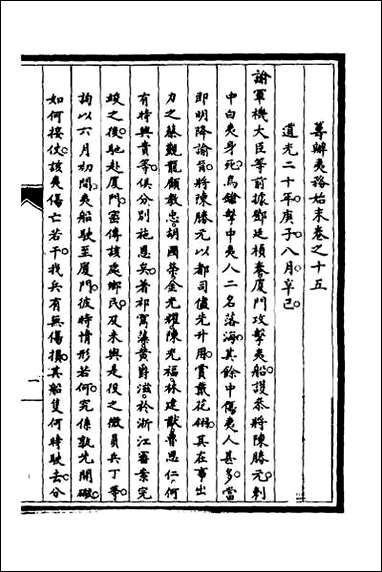 籌辦夷務始末卷之十五
道光二十年庚子八月辛巳
諭軍機大臣等前據鄧廷楨奏廈門攻擊夷船護恭將陳勝元刺
中白夷身死烏鎗擊中夷人二名落海其餘中傷夷人甚多當
即明降諭旨將陳勝元以都司儘先升用賞戴花翎其在事出
力之蔡觀龍顧教忠胡國榮金光耀陳光福林建猷魯思仁何
有特興貴等俱分別施恩矣著祁寯藻黃爵滋於浙江審案完
竣之後馳赴廈門密傳該處鄉民及未與是役之微員兵丁等
詢以六月初間夷船駛至廈門彼時情形若何究係孰先開礮
如何接仗該夷傷亡若干我兵有無傷損其船隻何時駛去分
一